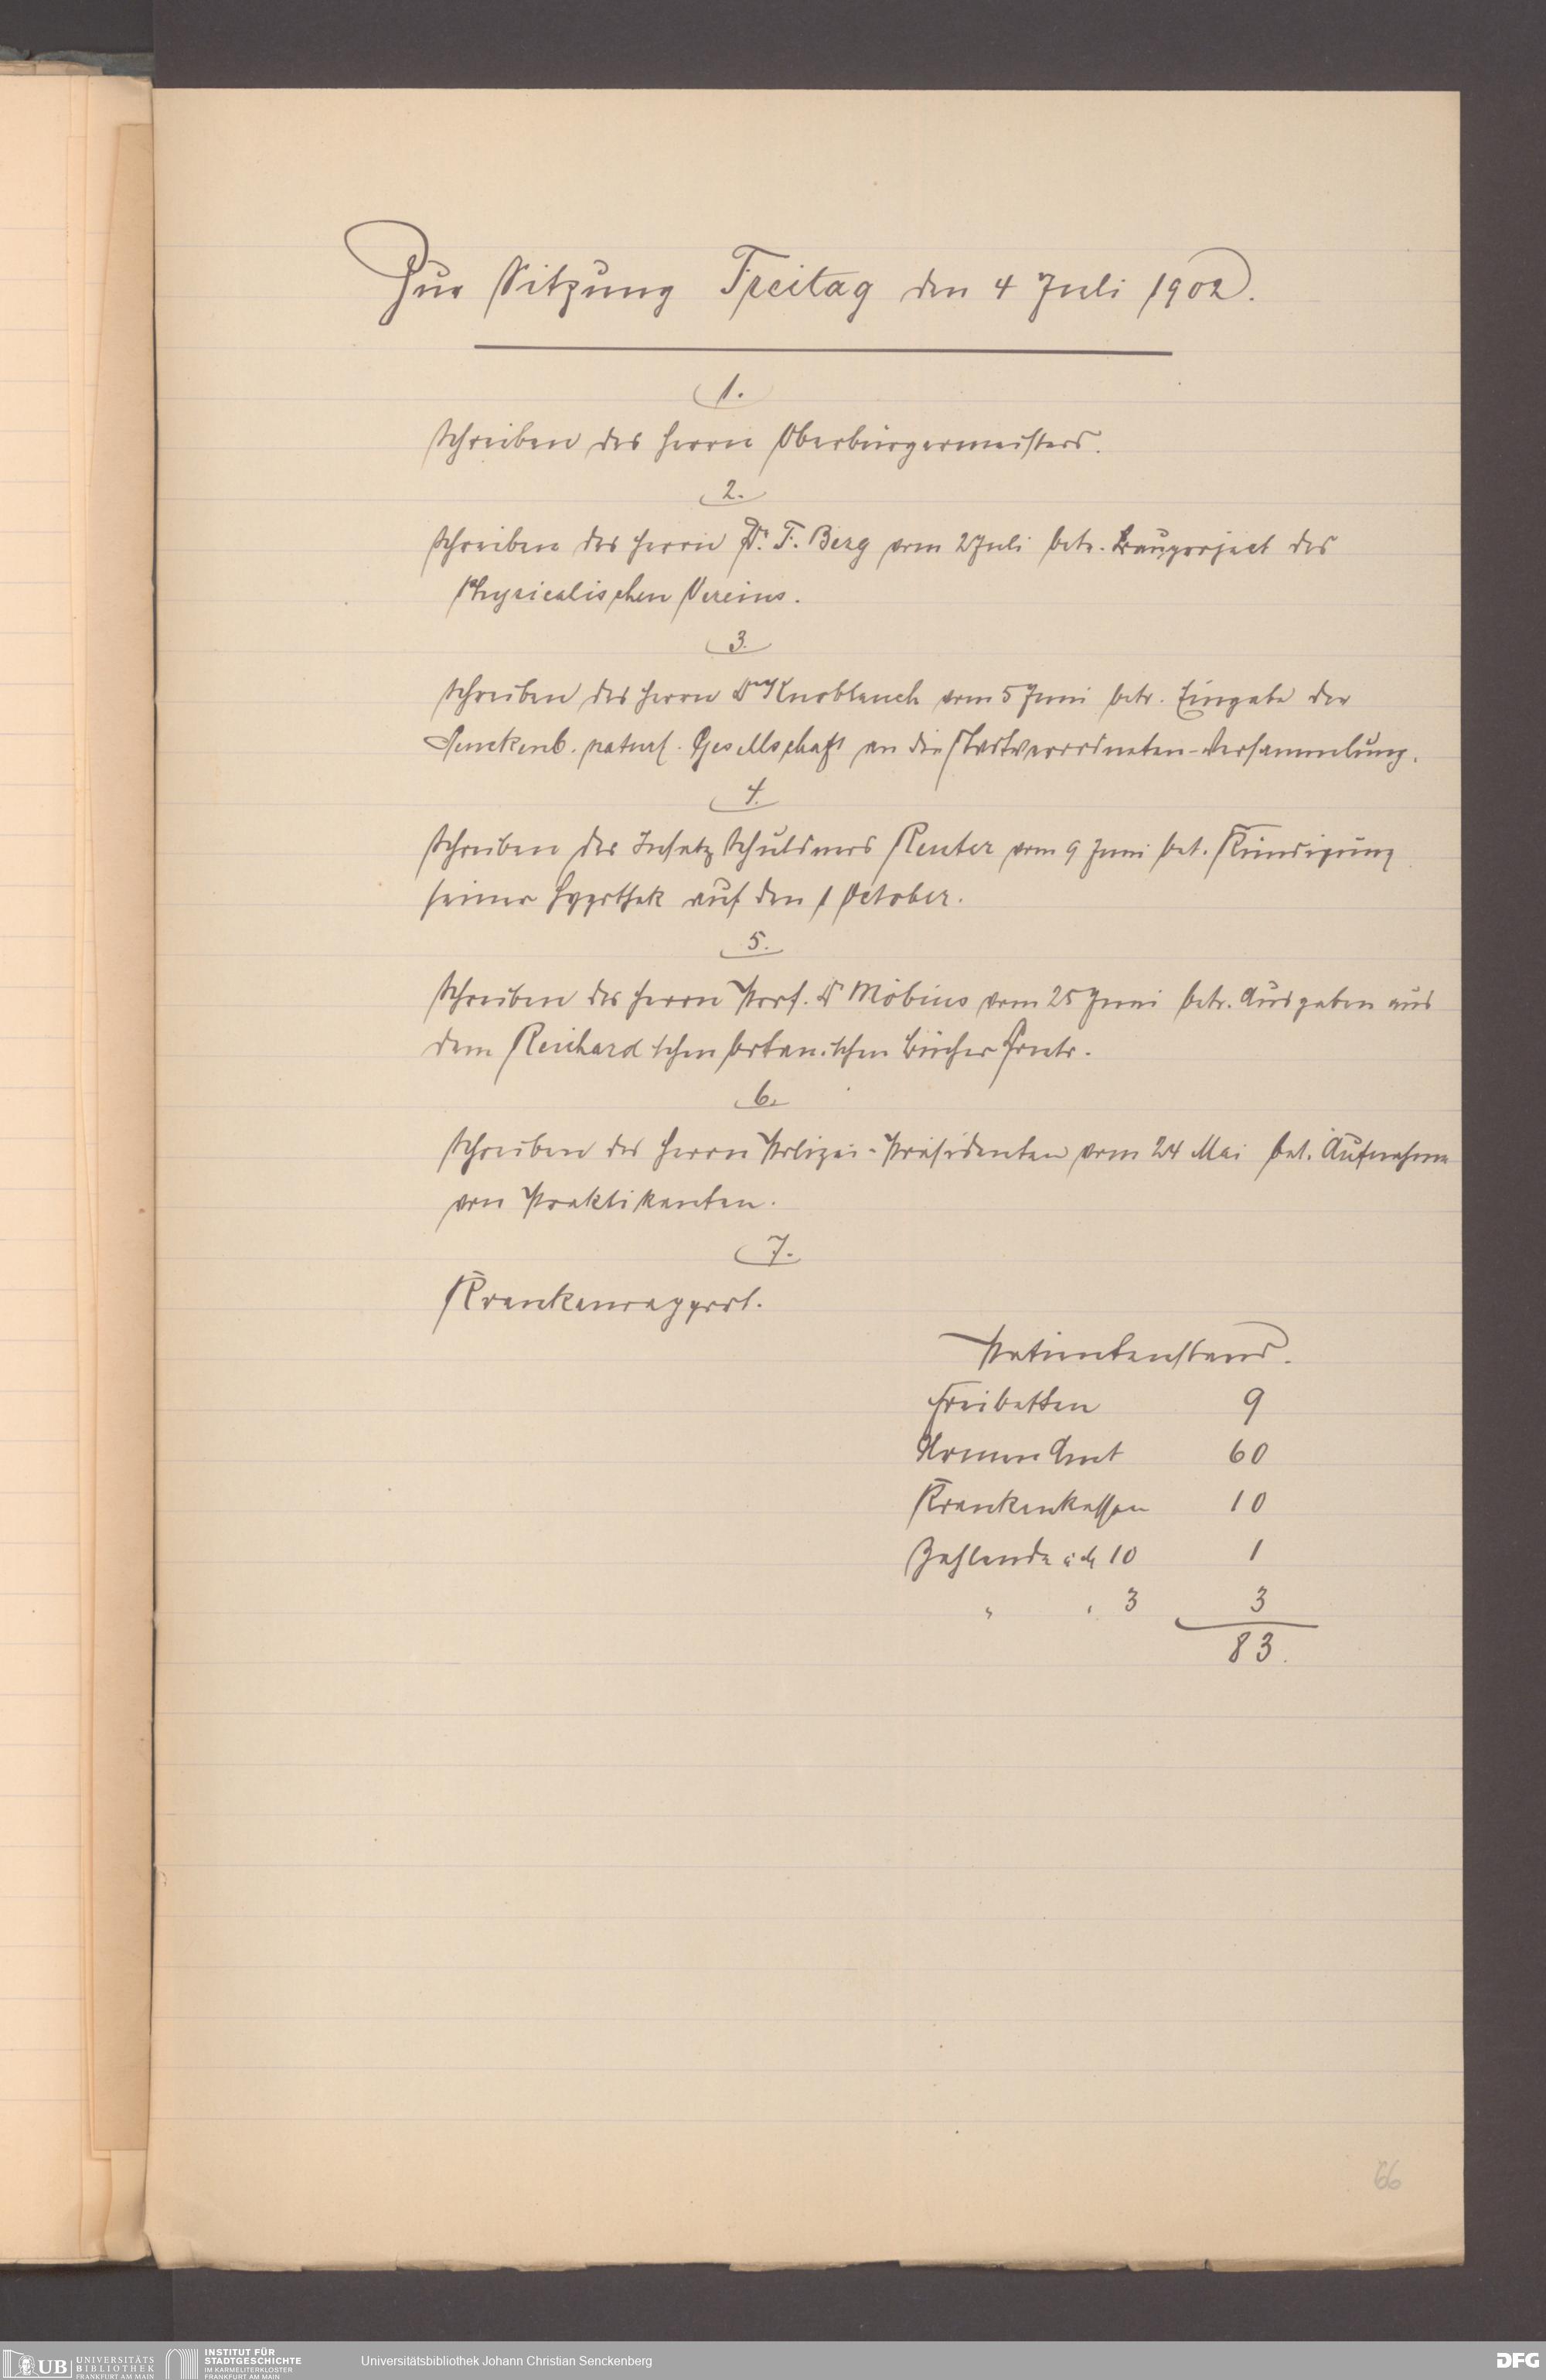 Zur Sitzung Freitag den 4 Juli 1902.
1.
Schreiben des Herrn Oberbürgermeisters.
2.
Schreiben des Herrn Dr. F. Berg vom 2 Juli betr. Bauproject des
Physicalischen Vereins.
3.
Schreiben des Herrn Dr Knoblauch vom 5 Juni betr. Eingabe der
Senckenb. naturf. Gesellschaft an die Stadtverordneten-Versammlung.
4.
Schreiben des Insatz Schuldners Reuter vom 9 Juni bet. Kündigung
seiner Hypothek auf den 1 October.
5.
Schreiben des Herrn Prof. Dr Möbius vom 25 Juni betr. Ausgaben aus
dem Reichard'schen botanischen Bücher Conto.
6.
Schreiben des Herrn Polizei-Präsidenten vom 24 Mai bet. Aufnahme
von Praktikanten.
7.
Krankenrapport.
Patientenstand.
Freibetten 9
Armen Amt 60
Krankenkassen 10
Zahlende à M 10 1
" " 3 3
83.
66
UB UNIVERSITÄTS
BIBLIOTHEK
FRANKFURT AM MAIN
INSTITUT FÜR
STADTGESCHICHTE
IM KARMELITERKLOSTER
FRANKFURT AM MAIN
Universitätsbibliothek Johann Christian Senckenberg
DFG